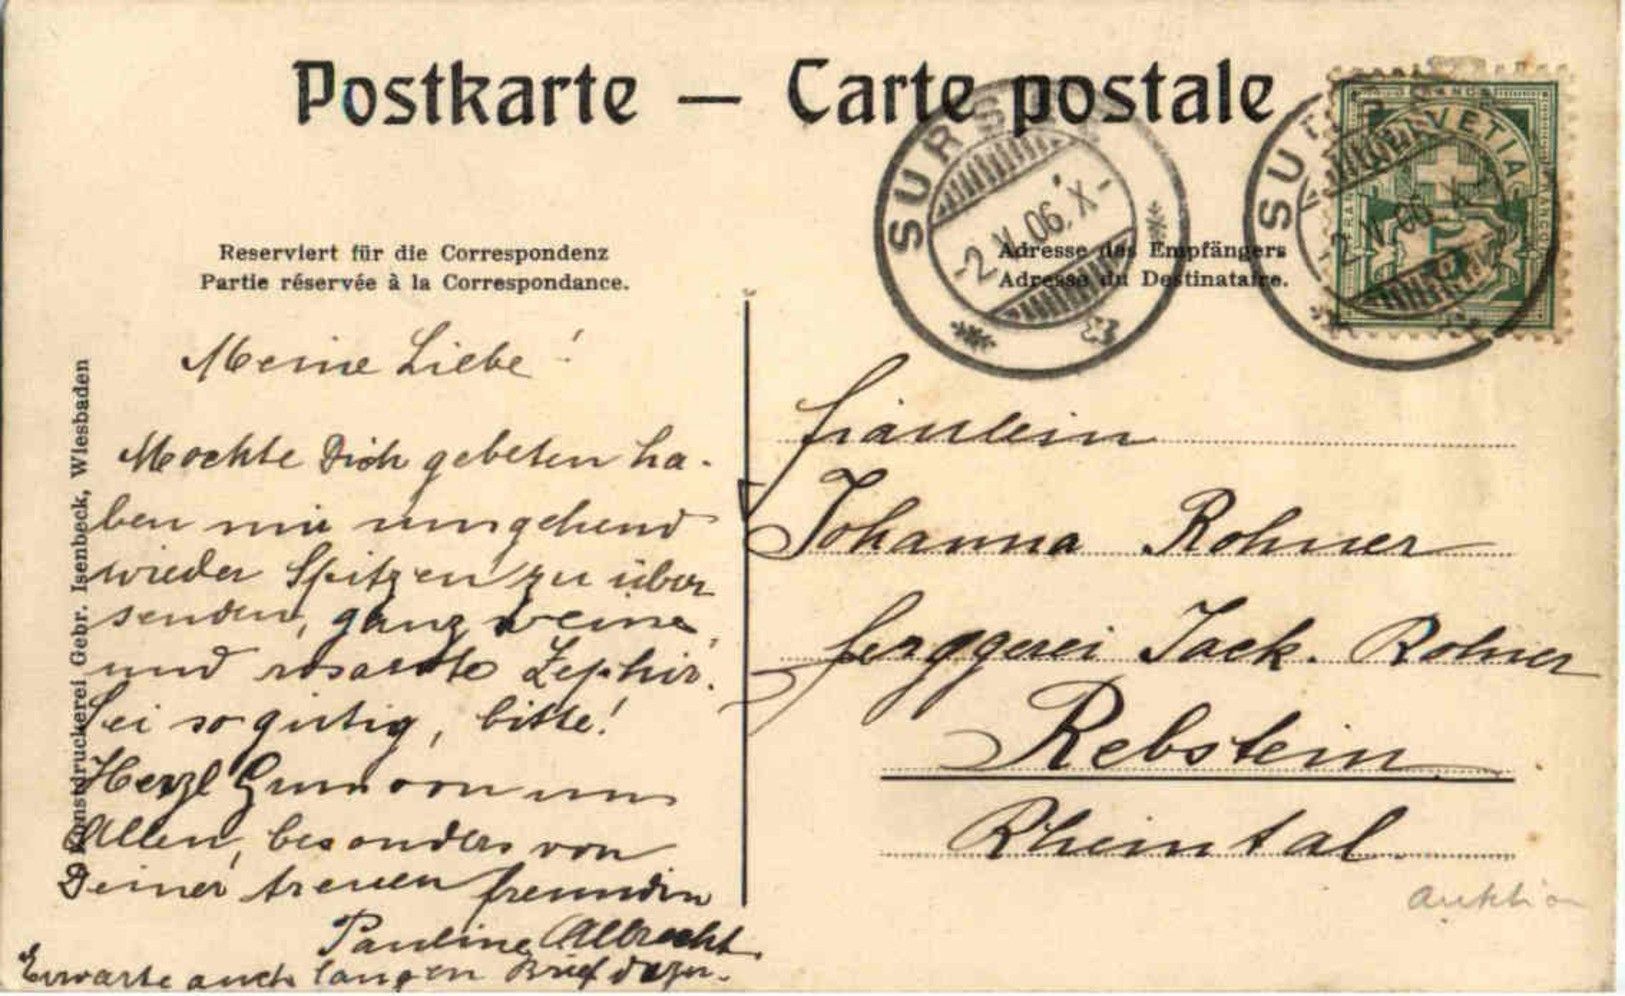 Postkarte — Carte postale
Reserviert für die Correspondenz
Partie réservée à la Correspondance.
Adresse des Empfängers
Adresse du Destinataire.
SURSEE
-2.V.06.X-
SURSEE
-2.V.06.X-
FRANCO
HELVETIA
5
Kunstdruckerei Gebr. Isenbeck, Wiesbaden
Meine Liebe!
Mochte Dich gebeten ha-
ben mir umgehend
wieder Spitzen zu über
senden, ganz
und Zephir.
Sei so gütig, bitte!
Herzl von uns
Allen, besonders von
Deiner treuen freundin
Pauline Albrecht.
Erwarte auch langen Brief dazu.
fräulein
Johanna Rohner
ferggerei Jack. Rohner
Rebstein
Rheintal.
auktion